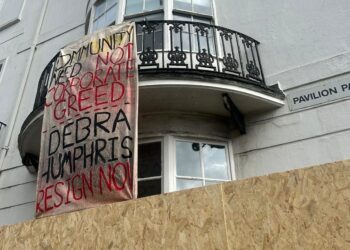 COMMUNITY
NEED NOT
CORPORATE
GREED
DEBRA
HUMPHRIS
RESIGN NOW
PAVILION PA